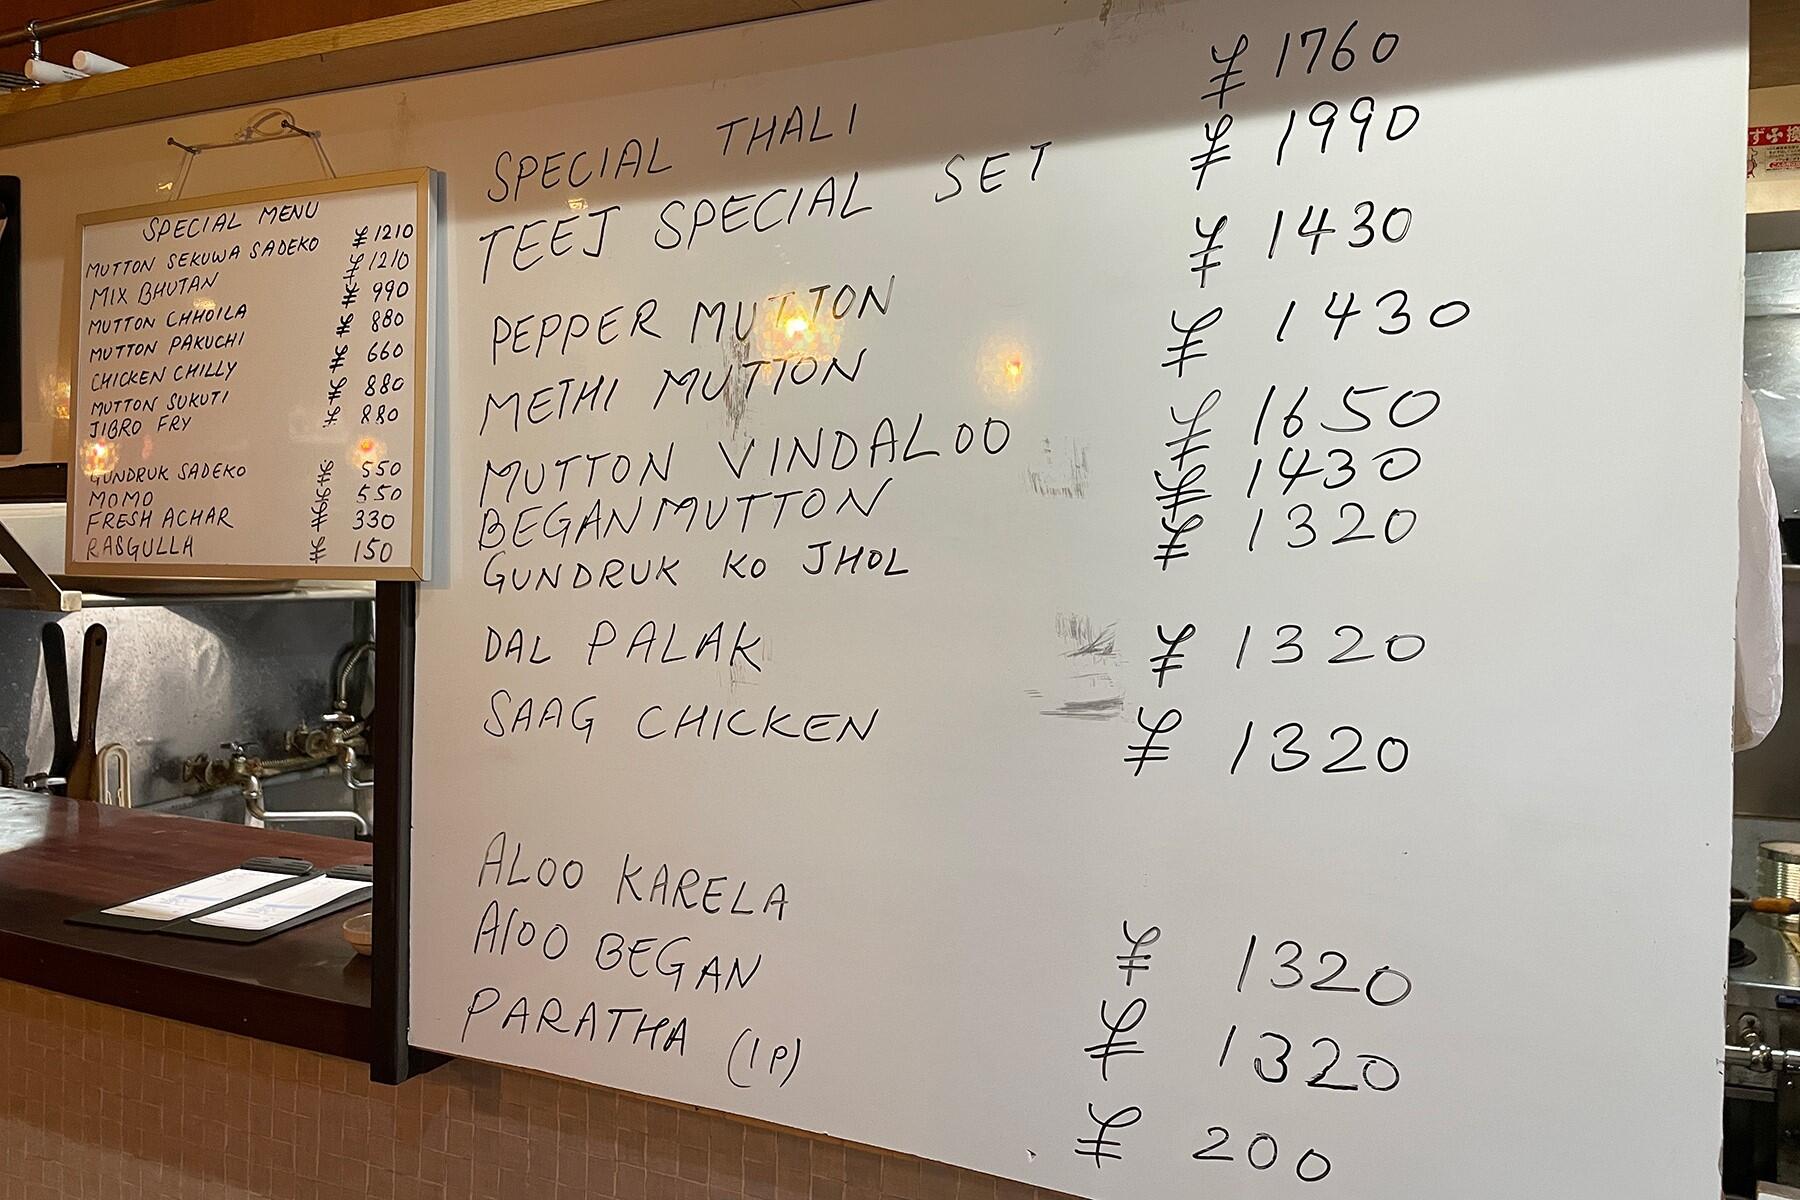 SPECIAL MENU
MUTTON SEKUWA SADEKO ¥1210
MIX BHUTAN ¥1210
MUTTON CHHOILA ¥ 990
MUTTON PAKUCHI ¥ 880
CHICKEN CHILLY ¥ 660
MUTTON SUKUTI ¥ 880
JIBRO FRY ¥ 880
GUNDRUK SADEKO ¥ 550
MOMO ¥ 550
FRESH ACHAR ¥ 330
RASGULLA ¥ 150
SPECIAL THALI ¥ 1760
TEEJ SPECIAL SET ¥ 1990
PEPPER MUTTON ¥ 1430
METHI MUTTON ¥ 1430
MUTTON VINDALOO ¥ 1650
BEGAN MUTTON ¥ 1430
GUNDRUK KO JHOL ¥ 1320
DAL PALAK ¥ 1320
SAAG CHICKEN ¥ 1320
ALOO KARELA ¥ 1320
AlOO BEGAN ¥ 1320
PARATHA (1P) ¥ 200